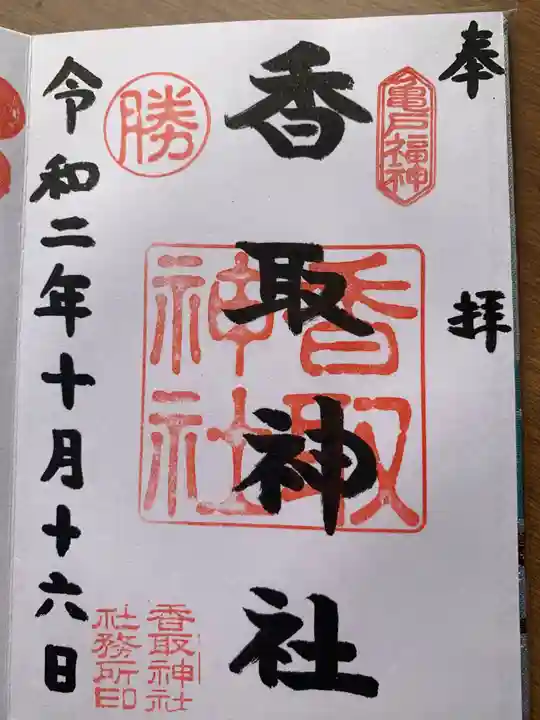 奉拝
亀戸福神
香取神社
香取
神社
勝
令和二年十月十六日
香取神社
社務所印